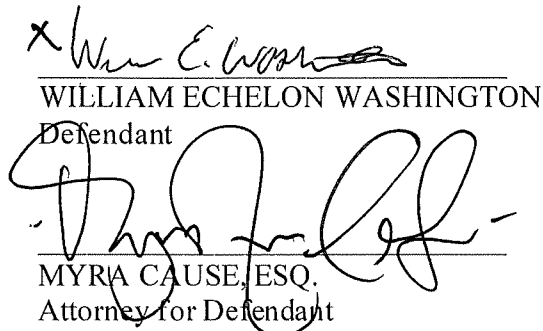 x W E. Wash
WILLIAM ECHELON WASHINGTON
Defendant
MYRA CAUSE, ESQ.
Attorney for Defendant